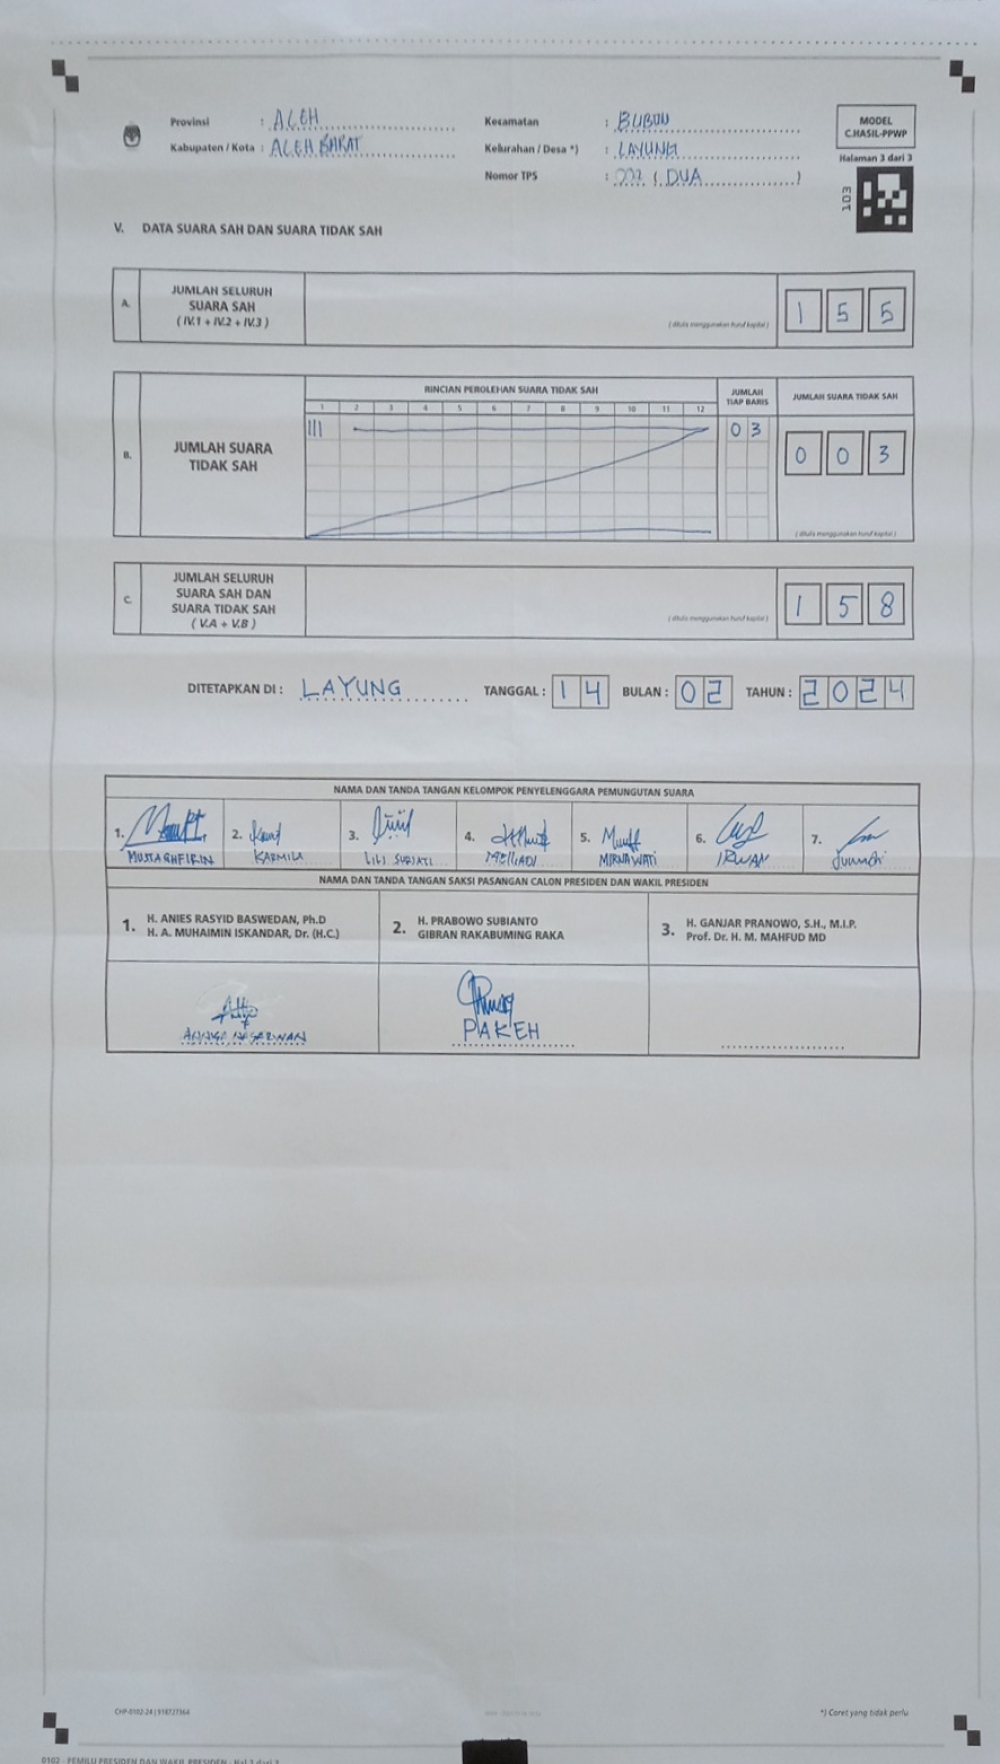 Provinsi : ACEH
Kabupaten / Kota : ACEH BARAT
Kecamatan : BUBON
Kelurahan / Desa *) : LAYUNG
Nomor TPS : 002 ( DUA )
MODEL
C.HASIL-PPWP
Halaman 3 dari 3
103
V. DATA SUARA SAH DAN SUARA TIDAK SAH
A. JUMLAH SELURUH
SUARA SAH
( IV.1 + IV.2 + IV.3 )
( ditulis menggunakan huruf kapital )
1 5 5
RINCIAN PEROLEHAN SUARA TIDAK SAH
JUMLAH
TIAP BARIS
JUMLAH SUARA TIDAK SAH
1 2 3 4 5 6 7 8 9 10 11 12
B. JUMLAH SUARA
TIDAK SAH
III
0 3
0 0 3
( ditulis menggunakan huruf kapital )
C. JUMLAH SELURUH
SUARA SAH DAN
SUARA TIDAK SAH
( V.A + V.B )
( ditulis menggunakan huruf kapital )
1 5 8
DITETAPKAN DI : LAYUNG TANGGAL : 14 BULAN : 02 TAHUN : 2024
NAMA DAN TANDA TANGAN KELOMPOK PENYELENGGARA PEMUNGUTAN SUARA
1. 2. 3. 4. 5. 6. 7.
MUSTAGHFIRIN KARMILA LILI SURIATI MELIADI MIRNAWATI IRWAN
NAMA DAN TANDA TANGAN SAKSI PASANGAN CALON PRESIDEN DAN WAKIL PRESIDEN
1. H. ANIES RASYID BASWEDAN, Ph.D
H. A. MUHAIMIN ISKANDAR, Dr. (H.C.)
2. H. PRABOWO SUBIANTO
GIBRAN RAKABUMING RAKA
3. H. GANJAR PRANOWO, S.H., M.I.P.
Prof. Dr. H. M. MAHFUD MD
PAKEH
CHP-0102-24 | 918727364
*) Coret yang tidak perlu
0102 - PEMILU PRESIDEN DAN WAKIL PRESIDEN - Hal 3 dari 3